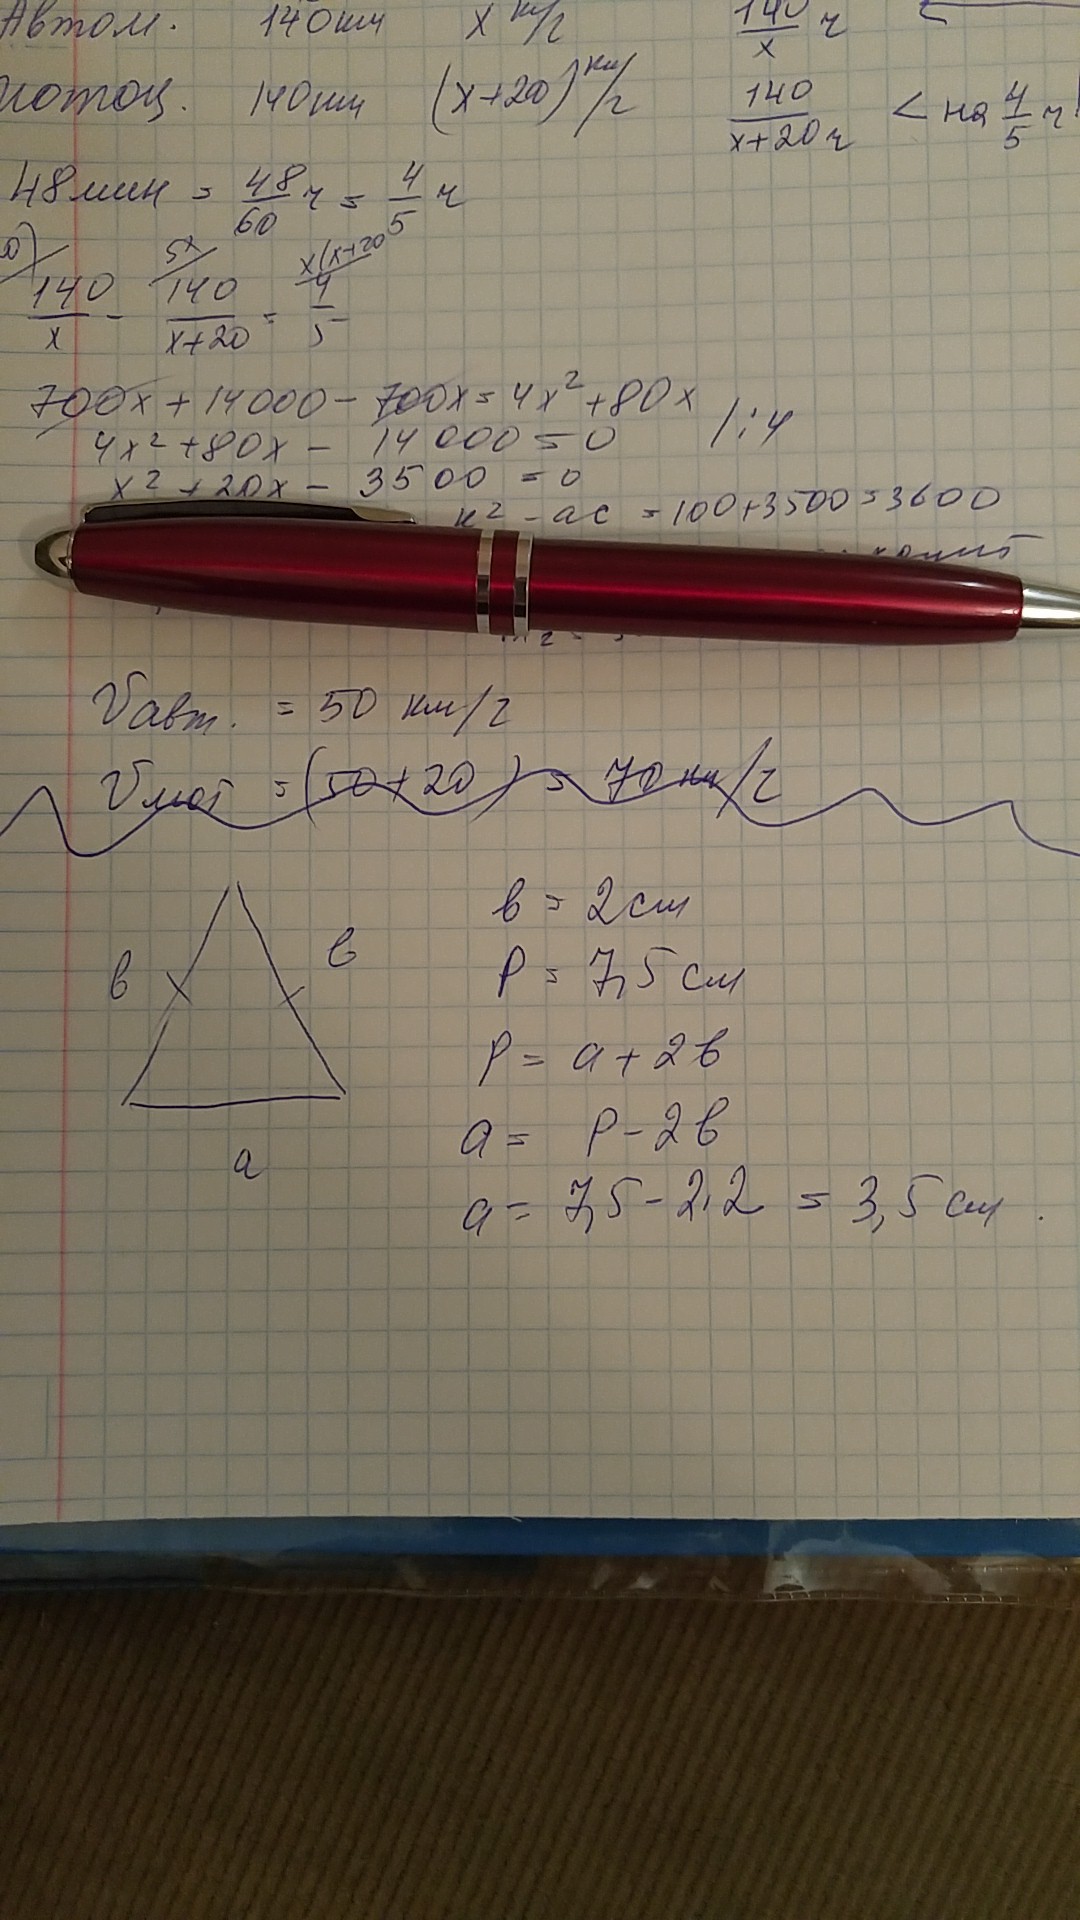 Автом. 140 км x км/г 140/x ч
мотоц. 140 км (x+20) км/г 140/x+20 ч < на 4/5 ч
48 мин = 48/60 ч = 4/5 ч
5x x(x+20
140/x - 140/x+20 = 4/5
700x + 14000 - 700x = 4x² + 80x
4x² + 80x - 14000 = 0 /:4
x² + 20x - 3500 = 0
к² - ac = 100 + 3500 = 3600
Vавт. = 50 км/г
Vмот = (50+20) = 70 км/г
в в
a
в = 2 см
P = 7,5 см
P = a + 2в
a = P - 2в
a = 7,5 - 2·2 = 3,5 см.